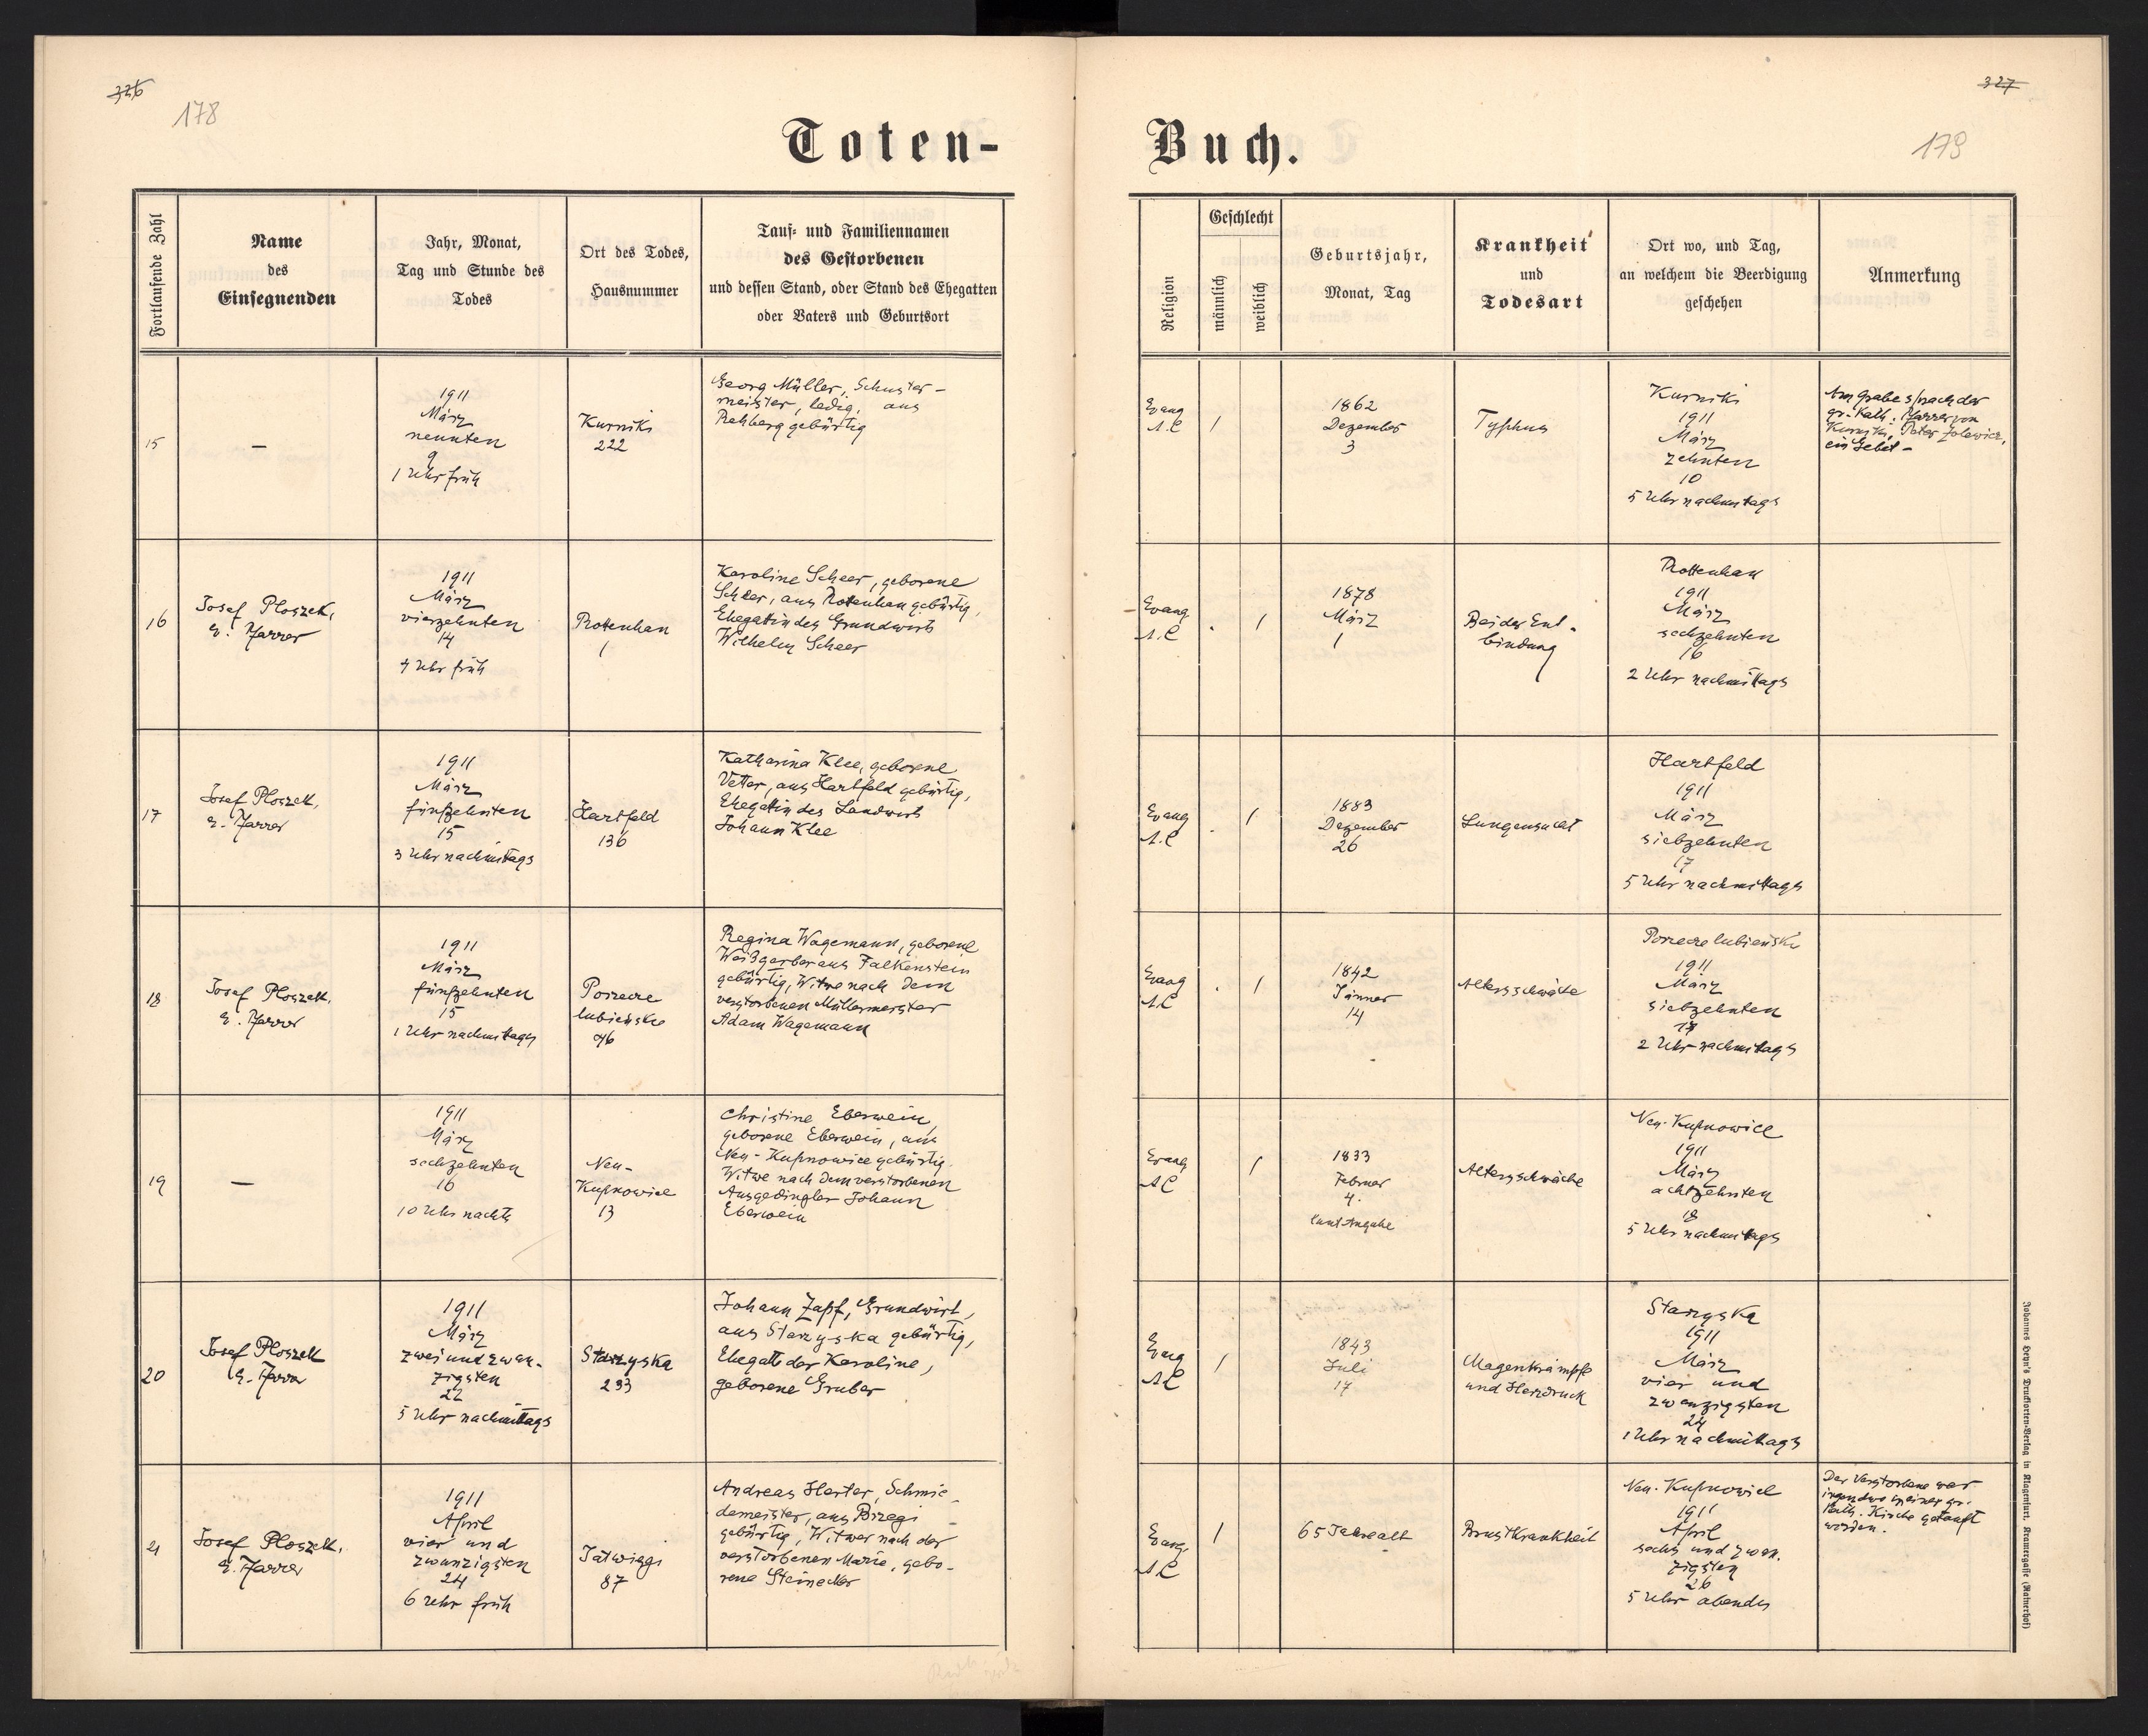 326
178
Toten-
Fortlaufende Zahl
Name
des
Einsegnenden
Jahr, Monat,
Tag und Stunde des
Todes
Ort des Todes,
Hausnummer
Tauf- und Familiennamen
des Gestorbenen
und dessen Stand, oder Stand des Ehegatten
oder Vaters und Geburtsort
15
—
1911
März
neunten
9
1 Uhr früh
Kurniki
222
Georg Müller, Schuster-
meister, ledig, aus
Rehberg gebürtig
16
Josef Ploszek,
e. Pfarrer
1911
März
vierzehnten
14
4 Uhr früh
Rotenhan
1
Karoline Scheer, geborene
Scheer, aus Rotenhan gebürtig,
Ehegattin des Grundwirts
Wilhelm Scheer
17
Josef Ploszek,
e. Pfarrer
1911
März
fünfzehnten
15
3 Uhr nachmittags
Hartfeld
136
Katharina Klee, geborene
Vetter, aus Hartfeld gebürtig,
Ehegattin des Landwirts
Johann Klee
18
Josef Ploszek,
e. Pfarrer
1911
März
fünfzehnten
15
1 Uhr nachmittags
Porzecze
lubieńskie
46
Regina Wagemann, geborene
Weißgerber aus Falkenstein
gebürtig, Witwe nach dem
verstorbenen Müllermeister
Adam Wagemann
19
—
1911
März
sechzehnten
16
10 Uhr nachts
Neu-
Kupnowice
13
Christine Eberwein,
geborene Eberwein, aus
Neu-Kupnowice gebürtig.
Witwe nach dem verstorbenen
Ausgedingler Johann
Eberwein
20
Josef Ploszek
e. Pfarrer
1911
März
zwei und zwan-
zigsten
22
5 Uhr nachmittags
Starzyska
233
Johann Zapf, Grundwirt,
aus Starzyska gebürtig,
Ehegatte der Karoline,
geborene Gruber
21
Josef Ploszek,
e. Pfarrer
1911
April
vier und
zwanzigsten
24
6 Uhr früh
Jatwięgi
87
Andreas Harter, Schmie-
demeister, aus Brzegi
gebürtig, Witwer nach der
verstorbenen Marie, gebo-
rene Steinecker
327
179
Buch.
Religion
Geschlecht
männlich
weiblich
Geburtsjahr,
Monat, Tag
Krankheit
und
Todesart
Ort wo, und Tag,
an welchem die Beerdigung
geschehen
Anmerkung
Evang
A.C
1
1862
Dezember
3
Typhus
Kurniki
1911
März
zehnten
10
5 Uhr nachmittags
Am Grabe sprach der
gr.-kath. Pfarrer von
Kurniki, Pater
ein Gebet -
Evang
A.C
1
1878
März
1
Bei der Ent-
bindung
Rottenhan
1911
März
sechzehnten
16
2 Uhr nachmittags
Evang
A.C
1
1883
Dezember
26
Lungensucht
Hartfeld
1911
März
siebzehnten
17
5 Uhr nachmittags
Evang
A.C
1
1842
Jänner
14
Altersschwäche
Porzecze lubieńskie
1911
März
siebzehnten
17
2 Uhr nachmittags
Evang
AC
1
1833
Februar
4.
laut Angabe
Altersschwäche
Neu-Kupnowice
1911
März
achtzehnten
18
5 Uhr nachmittags
Evang
AC
1
1843
Juli
17
Magenkrämpfe
und Herzdruck
Starzyska
1911
März
vier und
zwanzigsten
24
1 Uhr nachmittags
Evang.
AC
1
65 Jahre alt
Brustkrankheit
Neu-Kupnowice
1911
April
sechs und zwan-
zigsten
26
5 Uhr abends
Der Verstorbene war
irgendwo in einer gr.-
kath. Kirche getauft
worden.
Johannes Heyn's Drucksorten-Verlag in Klagenfurt, Kramergasse (Rainerhof)